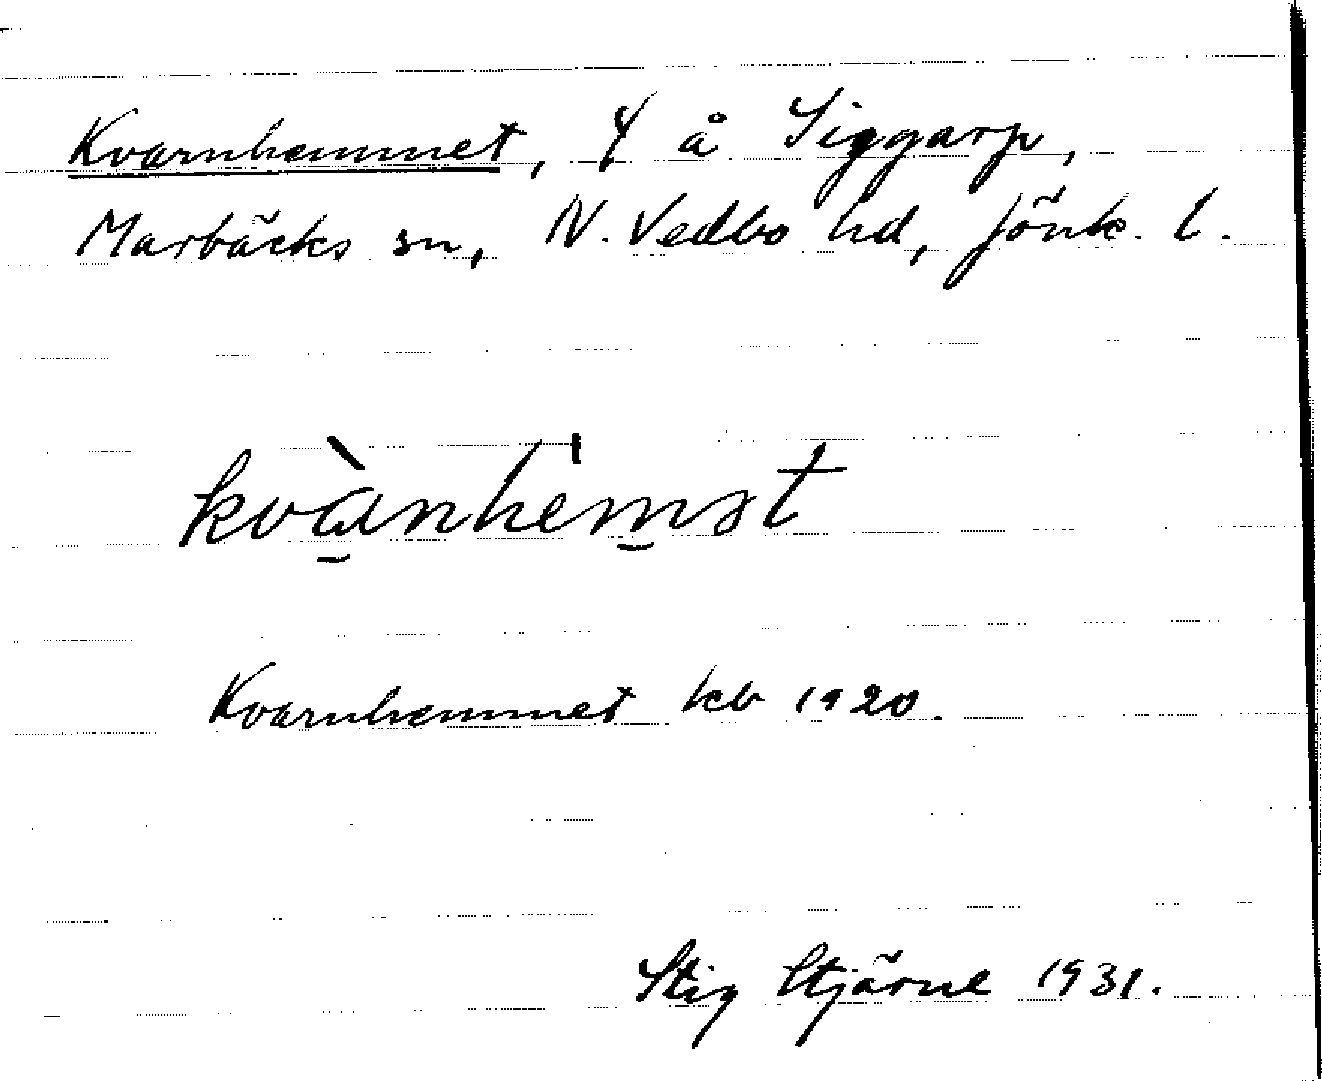 Kvarnhemmet, Y å Siggarp,
Marbäcks sn, N. Vedbo hd, Jönk. l.
kvànhemət
Kvarnhemmet kb 1920.
Stig Stjärne 1931.